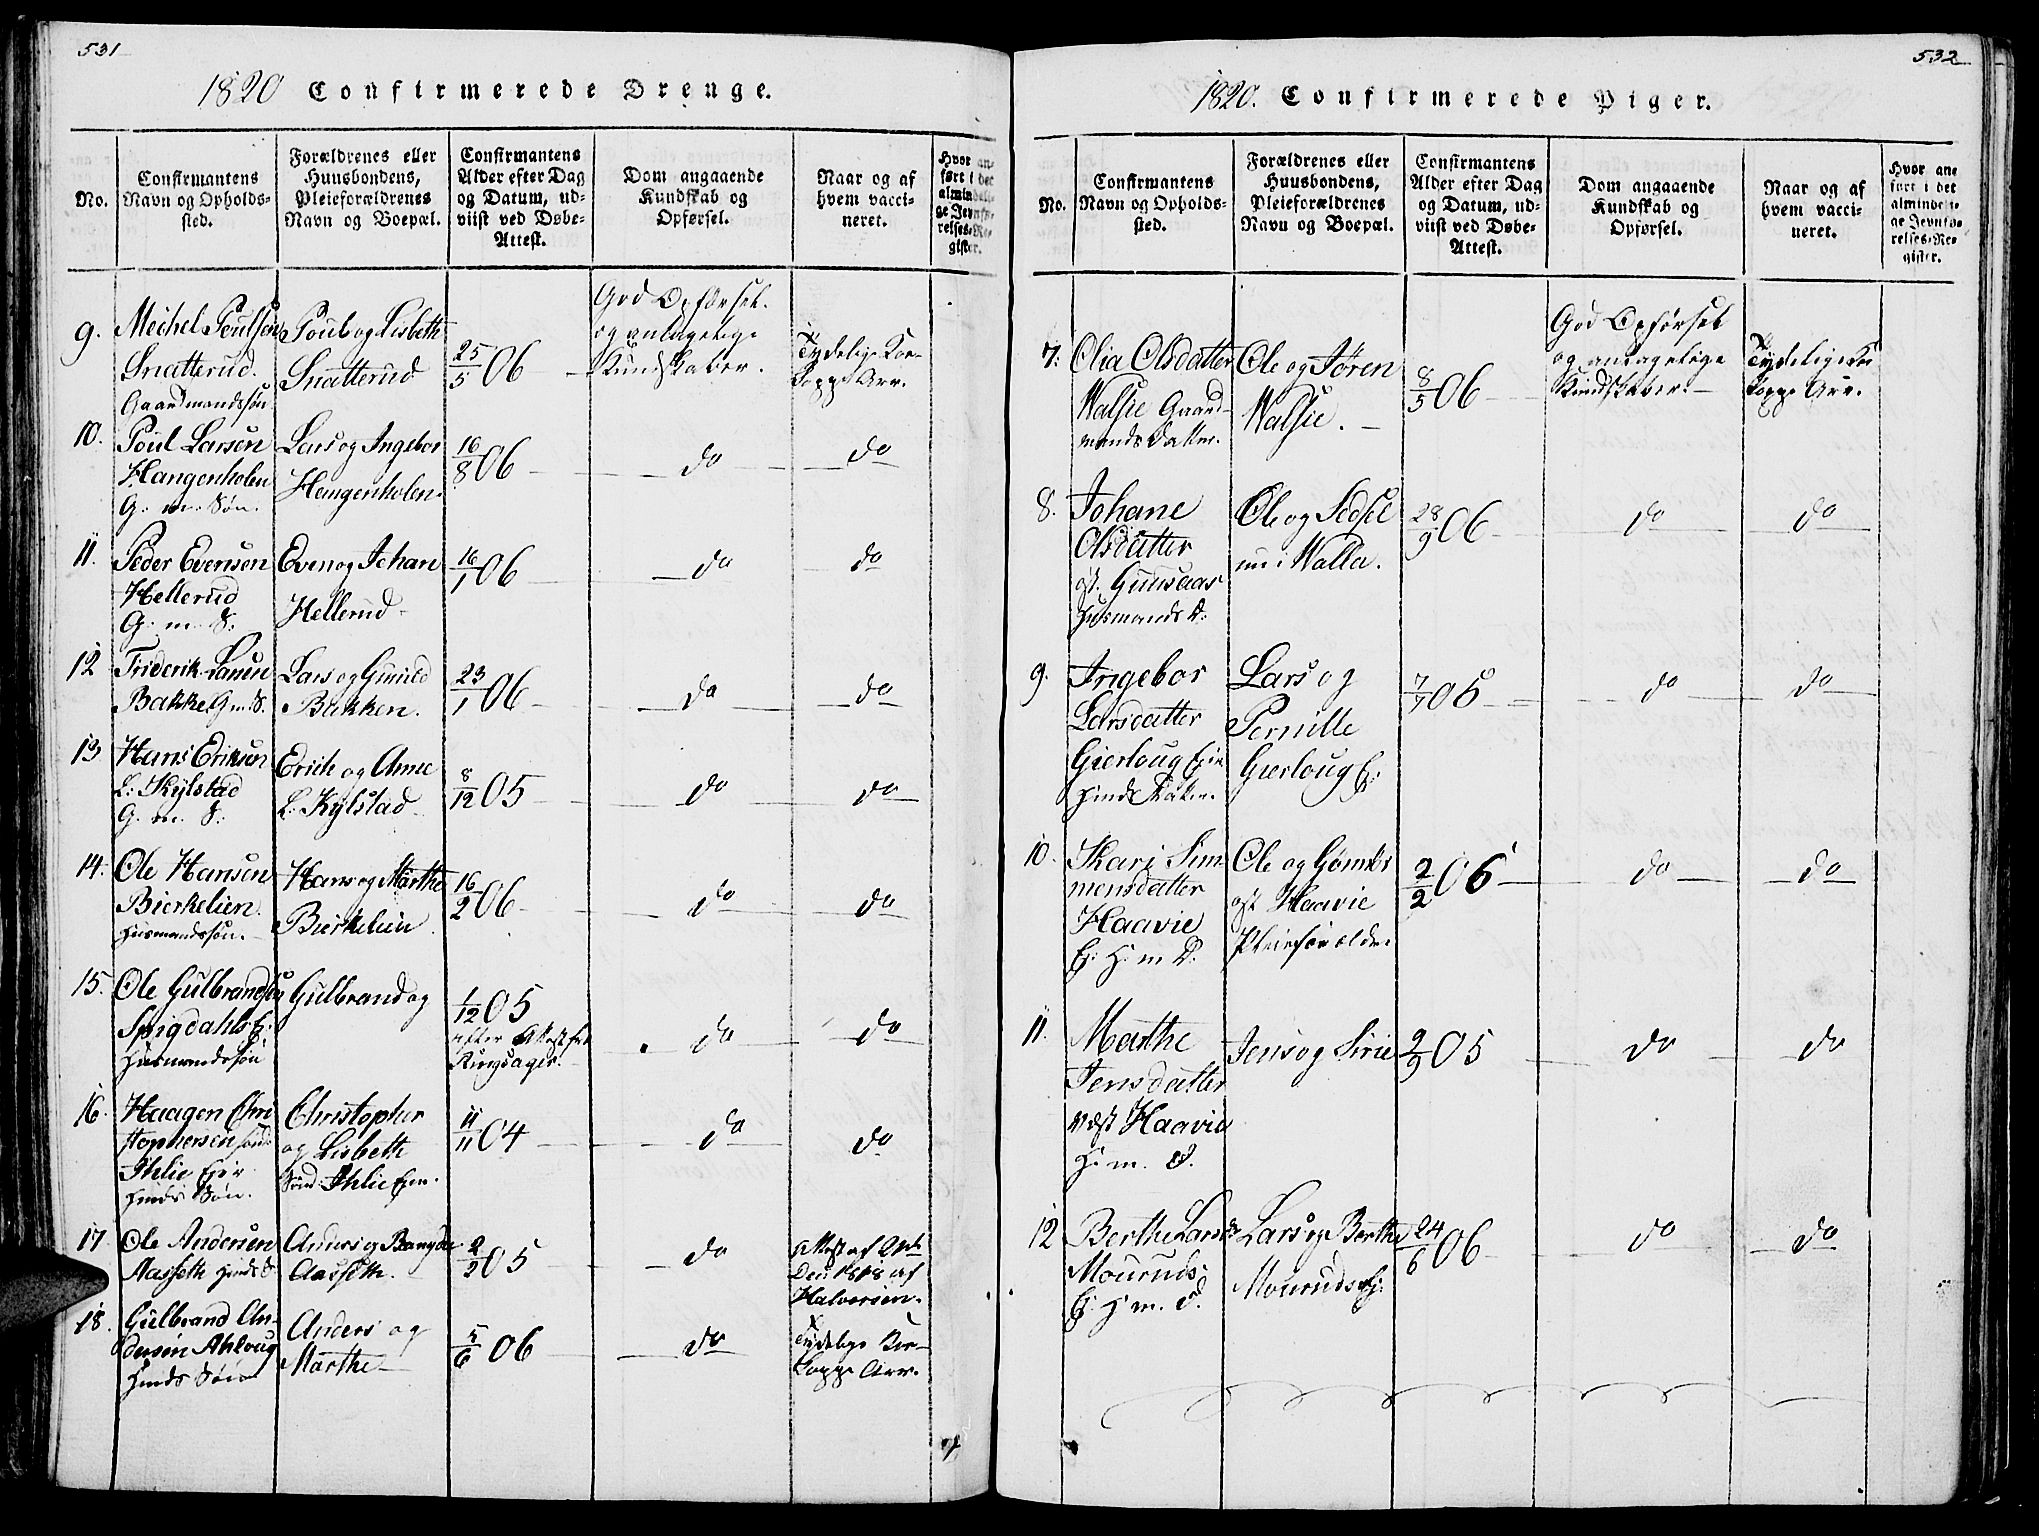 531
1820 Confirmerede Drenge.
No.
Confirmantens Navn og Opholds-
sted.
Forældrenes eller
Huusbondens,
Pleieforældrenes
Navn og Boepæl.
Confirmantens
Alder efter Dag
og Datum, ud-
viist ved Døbe-
Attest.
Dom angaaende
Kundskab og
Opførsel.
Naar og af
hvem vacci-
neret.
Hvor an-
ført i det
almindeli-
ge Jevnfø-
relses-Re-
gister.
9.
Michel Poulsen
Snatterud.
Gaardmandssøn
Poul og Lisbeth
Snatterud
25/5 06
God Opførsel.
og antagelige
Kundskaber.
Tydelige Koe-
koppe Arr.
10.
Poul Larsen
Hangenholen
G. m. Søn.
Lars og Ingebor
Hengenholen.
16/8 06
do
do
11.
Peder Evensen
Hellerud
G. m. S.
Even og Johan
Hellerud
16/1 06
do
do
12
Friderik Larsen
Bakke G. m. S.
Lars og Gunild
Bakken.
23/1 06
do
do
13
Hans Eriksen
L: Kylstad
G. m. S:
Erich og Anne
L: Kylstad
8/12 05
do
do
14.
Ole Hansen
Bierkelien.
Husmandssøn.
Hans og Marthe
Bierkelien
16/2 06
do
do
15.
Ole Gulbrandsen
Spigdahls Ej:
Husmandssøn
Gulbrand og
1/12 05
efter Attest fra
Ringsager.
do
do
16.
Haagen Chri
stophersen
Ihlie Ejer
Søn.
Christopher
og Lisbeth
Sønd: Ihlie
11/11 04
do
do
17
Ole Andersen
Aasseth
Anders og
Aasseth.
2/2 05
do
Attest af
1818 af
Halvorsen.
18.
Gulbrand An-
dersen Ahloug
Søn
Anders og
Marthe
5/6 06
do
Tydelige Koe-
koppe Arr.
532
1820. Confirmerede Piger.
No.
Confirmantens
Navn og Opholds-
sted.
Forældrenes eller
Huusbondens,
Pleieforældrenes
Navn og Boepæl.
Confirmantens
Alder efter Dag
og Datum, ud-
viist ved Døbe-
Attest.
Dom angaaende
Kundskab og
Opførsel.
Naar og af
hvem vacci-
neret.
Hvor an-
ført i det
almindeli-
ge Jevnfø-
relses-Re-
gister.
7.
Olia Olsdatter
Walsie Gaard-
mands Datter.
Ole og Jøren
Walsie.
8/5 06
God Opførsel
og antagelige
Kundskaber.
Tydelige Koe
koppe Arr.
8.
Johane
Olsdatter
øst. Gunsaas
Husmands D:
Ole og Sidsel
nu i Walla.
28/9 06
do
do
9.
Ingebor
Larsdatter
Gierloug Eje
Lars og
Pernille
Gierloug Ej:
7/7 05
do
do
10.
Kari Sim
mensdatter
Haavie
Ej: H: m D:
Ole og
øst Haavie
Pleieforældre
2/2 06
do
do
11.
Marthe
Jensdatter
Vest Haavie
H: m. D.
Jens og Sirie
2/9 05
do
do
12
Berthe Larsd
Mouruds.
Ej: H: m. D.
Lars og Berthe
Mouruds Ej:
24/6 06
do
do